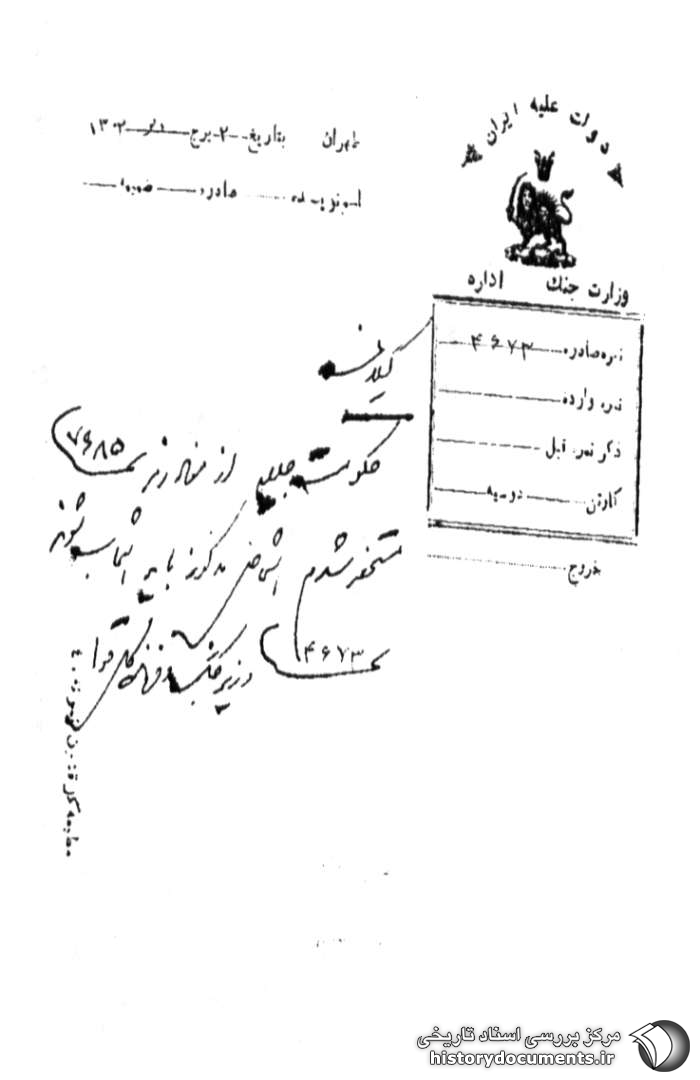 دولت علیه ایران
وزارت جنگ اداره
طهران بتاریخ ۲ برج ۱۳۰۲
صادره ضمیمه
نمره صادره ۴۶۷۳
نمره وارده
ذکر نمره قبل
کارتن دوسیه
خروج
حکومت جلیله از مفاد رمز ۷۶۸۵
مستحضر شدم اشخاص مذکور باید
۴۶۷۳
وزیر جنگ و فرمانده کل قوا
مرکز بررسی اسناد تاریخی
historydocuments.ir